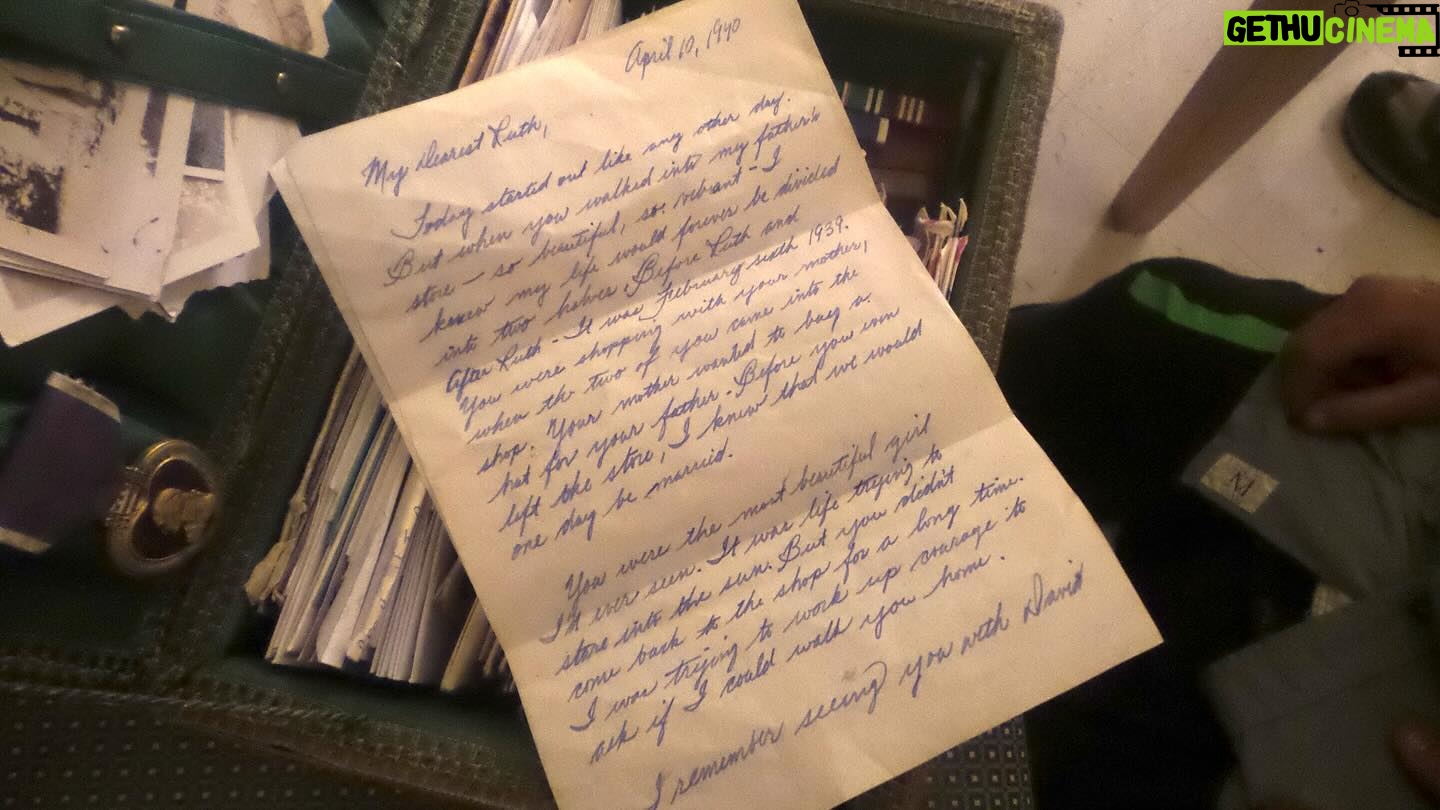 GETHUCINEMA
April 10, 1940
My Dearest Ruth,
Today started out like any other day.
But when you walked into my father's
store - so beautiful, so vibrant - I
knew my life would forever be divided
into two halves. Before Ruth and
After Ruth - It was February sixth 1939.
You were shopping with your mother,
when the two of you came into the
shop. Your mother wanted to buy a
hat for your father. Before you even
left the store, I knew that we would
one day be married.
You were the most beautiful girl
I'd ever seen. It was like trying to
stare into the sun. But you didn't
come back to the shop for a long time.
I was trying to work up courage to
ask if I could walk you home.
I remember seeing you with David
M